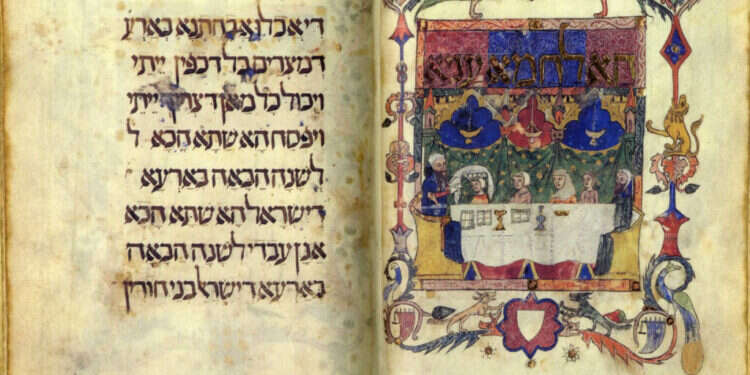 הא לחמא עניא
די אכלו אבהתנא בארע
דמצרים כל דכפין ייתי
ויכול כל מאן דצריך ייתי
ויפסח הא שתא הכא ל
לשנה הבאה בארעא
דישראל הא שתא הכא
אנן עבדי לשנה הבאה
בארעא דישראל בני חורין